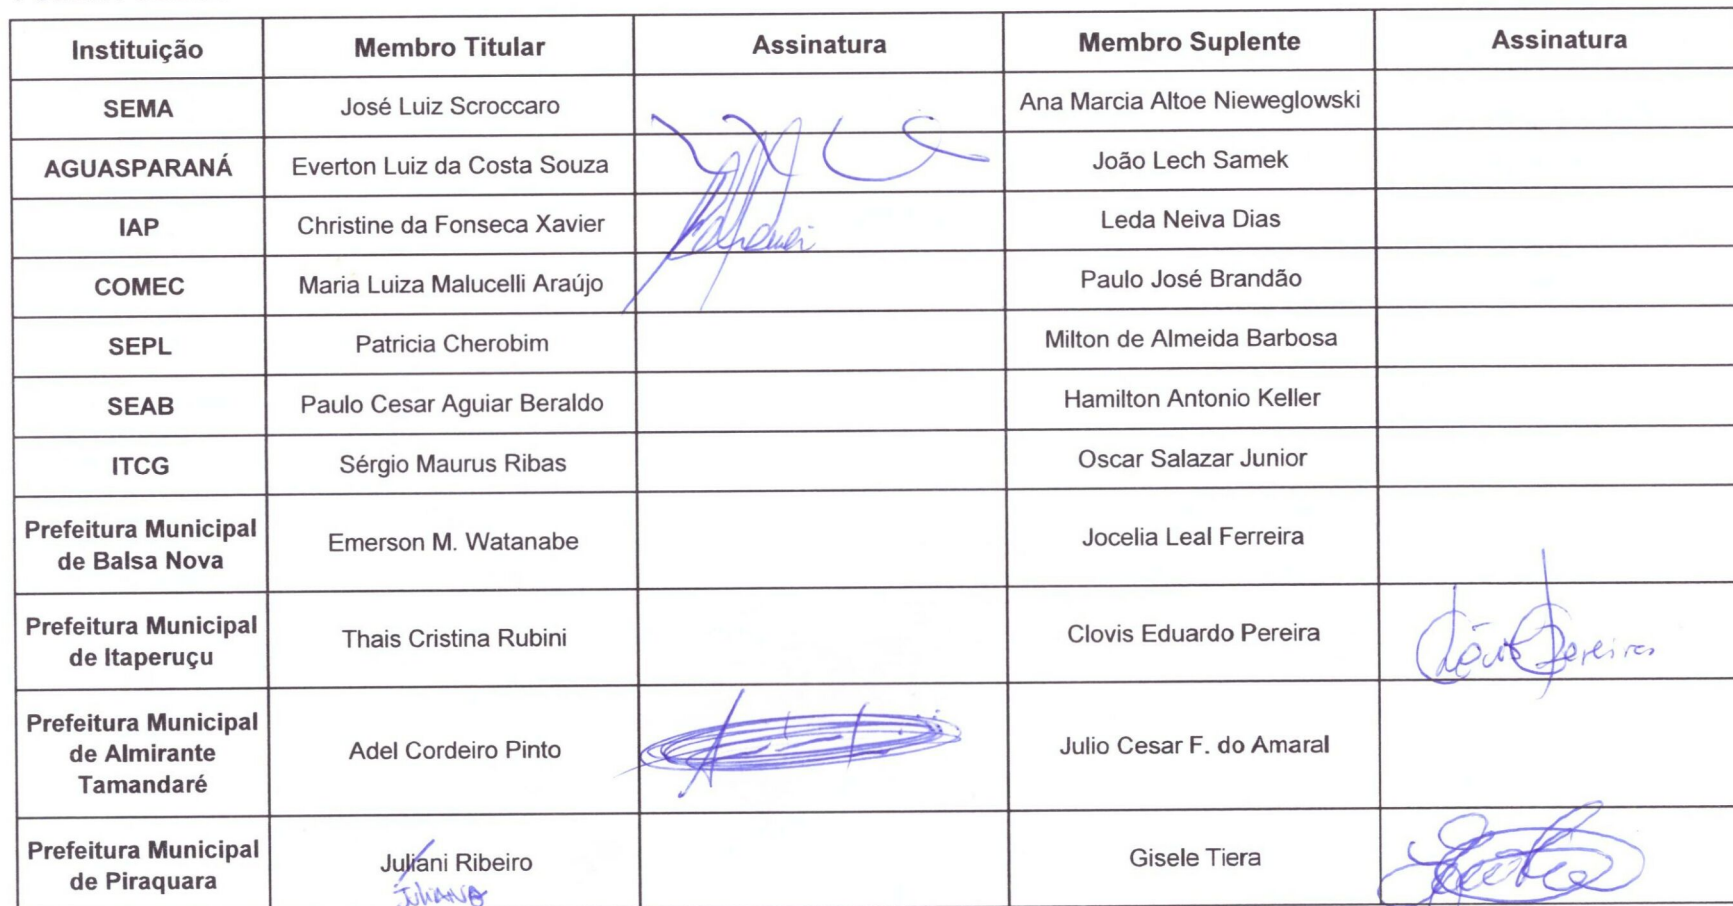 Instituição Membro Titular Assinatura Membro Suplente Assinatura
SEMA José Luiz Scroccaro Ana Marcia Altoe Nieweglowski
AGUASPARANÁ Everton Luiz da Costa Souza João Lech Samek
IAP Christine da Fonseca Xavier Leda Neiva Dias
COMEC Maria Luiza Malucelli Araújo Paulo José Brandão
SEPL Patricia Cherobim Milton de Almeida Barbosa
SEAB Paulo Cesar Aguiar Beraldo Hamilton Antonio Keller
ITCG Sérgio Maurus Ribas Oscar Salazar Junior
Prefeitura Municipal
de Balsa Nova
Emerson M. Watanabe Jocelia Leal Ferreira
Prefeitura Municipal
de Itaperuçu
Thais Cristina Rubini Clovis Eduardo Pereira Clóvis Pereira
Prefeitura Municipal
de Almirante
Tamandaré
Adel Cordeiro Pinto Julio Cesar F. do Amaral
Prefeitura Municipal
de Piraquara
Juliani Ribeiro Gisele Tiera
JULIANO